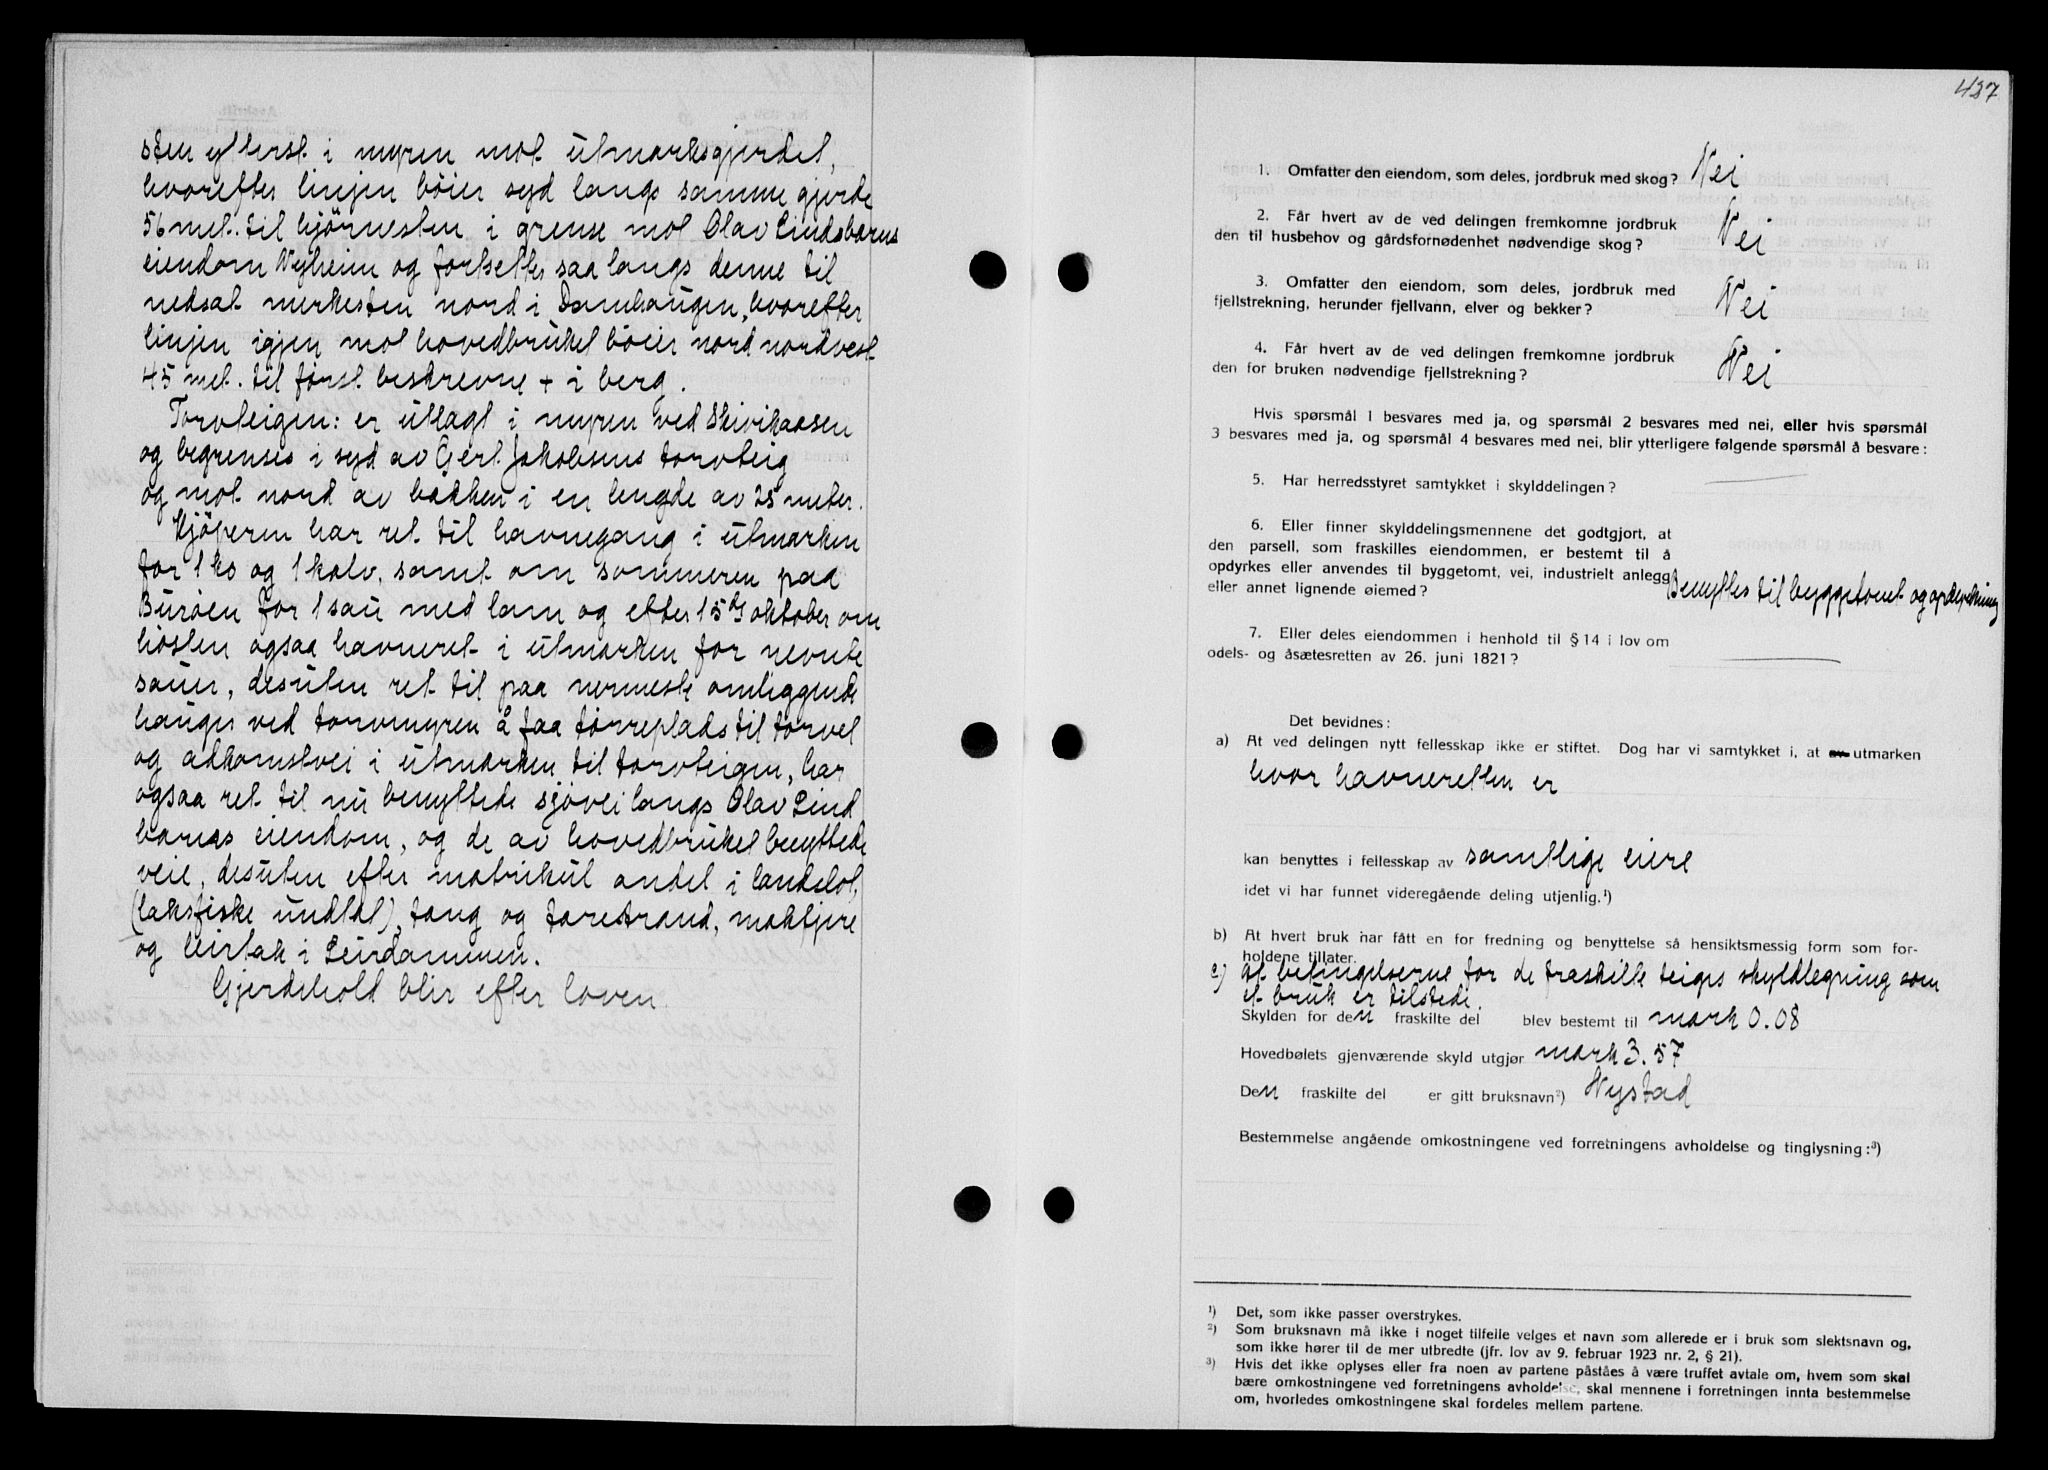 sten ytterst i myren mot utmarksgjerdet,
hvorefter linjen böier syd langs samme gjerde
56 met. til hjörnesten i grense mot Olav Lindebarns
eiendom Nyheim og fortsettes saa langs denne til
nedsat merkesten nord i Damhaugen, hvorefter
linjen igjen mot hovedbruket böier nord nordvest
45 met. til först beskrevne + i berg.
Torvteigen: er utlagt i myren ved Skivikaasen
og begrenses i syd av Gert Jakobsens torvteig
og mot nord av bækken i en lengde av 25 meter.
Kjöperen har ret til havnegang i utmarken
for 1 ko og 1 kalv, samt om sommeren paa
Buröen for 1 sau med lam og efter 15de oktober om
hösten ogsaa havneret i utmarken for nevnte
sauer, desuten ret til paa nermeste omliggende
hauger ved torvmyren å faa törreplads til torvet
og adkomstvei i utmarken til torvteigen, har
ogsaa ret til nu benyttede sjövei langs Olav Lind
barns eiendom, og de av hovedbruket benyttede
veie, desuten efter matrikul andel i landslot,
(laksfiske undtat), tang og tarestrand, makfjære
og leirtak i Leirdammen.
Gjerdehold blir efter loven.
437
1. Omfatter den eiendom, som deles, jordbruk med skog? Nei
2. Får hvert av de ved delingen fremkomne jordbruk
den til husbehov og gårdsfornødenhet nødvendige skog? Nei
3. Omfatter den eiendom, som deles, jordbruk med
fjellstrekning, herunder fjellvann, elver og bekker? Nei
4. Får hvert av de ved delingen fremkomne jordbruk
den for bruken nødvendige fjellstrekning? Nei
Hvis spørsmål 1 besvares med ja, og spørsmål 2 besvares med nei, eller hvis spørsmål
3 besvares med ja, og spørsmål 4 besvares med nei, blir ytterligere følgende spørsmål å besvare:
5. Har herredsstyret samtykket i skylddelingen?
6. Eller finner skylddelingsmennene det godtgjort, at
den parsell, som fraskilles eiendommen, er bestemt til å
opdyrkes eller anvendes til byggetomt, vei, industrielt anlegg
eller annet lignende øiemed? Benyttes til byggetomt og opdyrkning
7. Eller deles eiendommen i henhold til § 14 i lov om
odels- og åsætesretten av 26. juni 1821?
Det bevidnes:
a) At ved delingen nytt fellesskap ikke er stiftet. Dog har vi samtykket i, at av utmarken
hvor havneretten er
kan benyttes i fellesskap av samtlige eiere
idet vi har funnet videregående deling utjenlig.¹)
b) At hvert bruk har fått en for fredning og benyttelse så hensiktsmessig form som for-
holdene tillater.
c) At betingelserne for de fraskilte teigers skyldlegning som
et bruk er tilstede.
Skylden for den fraskilte del blev bestemt til mark 0.08
Hovedbølets gjenværende skyld utgjør mark 3.57
Den fraskilte del er gitt bruksnavn²) Nystad
Bestemmelse angående omkostningene ved forretningens avholdelse og tinglysning:³)
¹) Det, som ikke passer overstrykes.
²) Som bruksnavn må ikke i noget tilfelle velges et navn som allerede er i bruk som slektsnavn og,
som ikke hører til de mer utbredte (jfr. lov av 9. februar 1923 nr. 2, § 21).
³) Hvis det ikke oplyses eller fra noen av partene påståes å være truffet avtale om, hvem som skal
bære omkostningene ved forretningens avholdelse, skal mennene i forretningen innta bestemmelse
om, hvorledes omkostningene skal fordeles mellem partene.